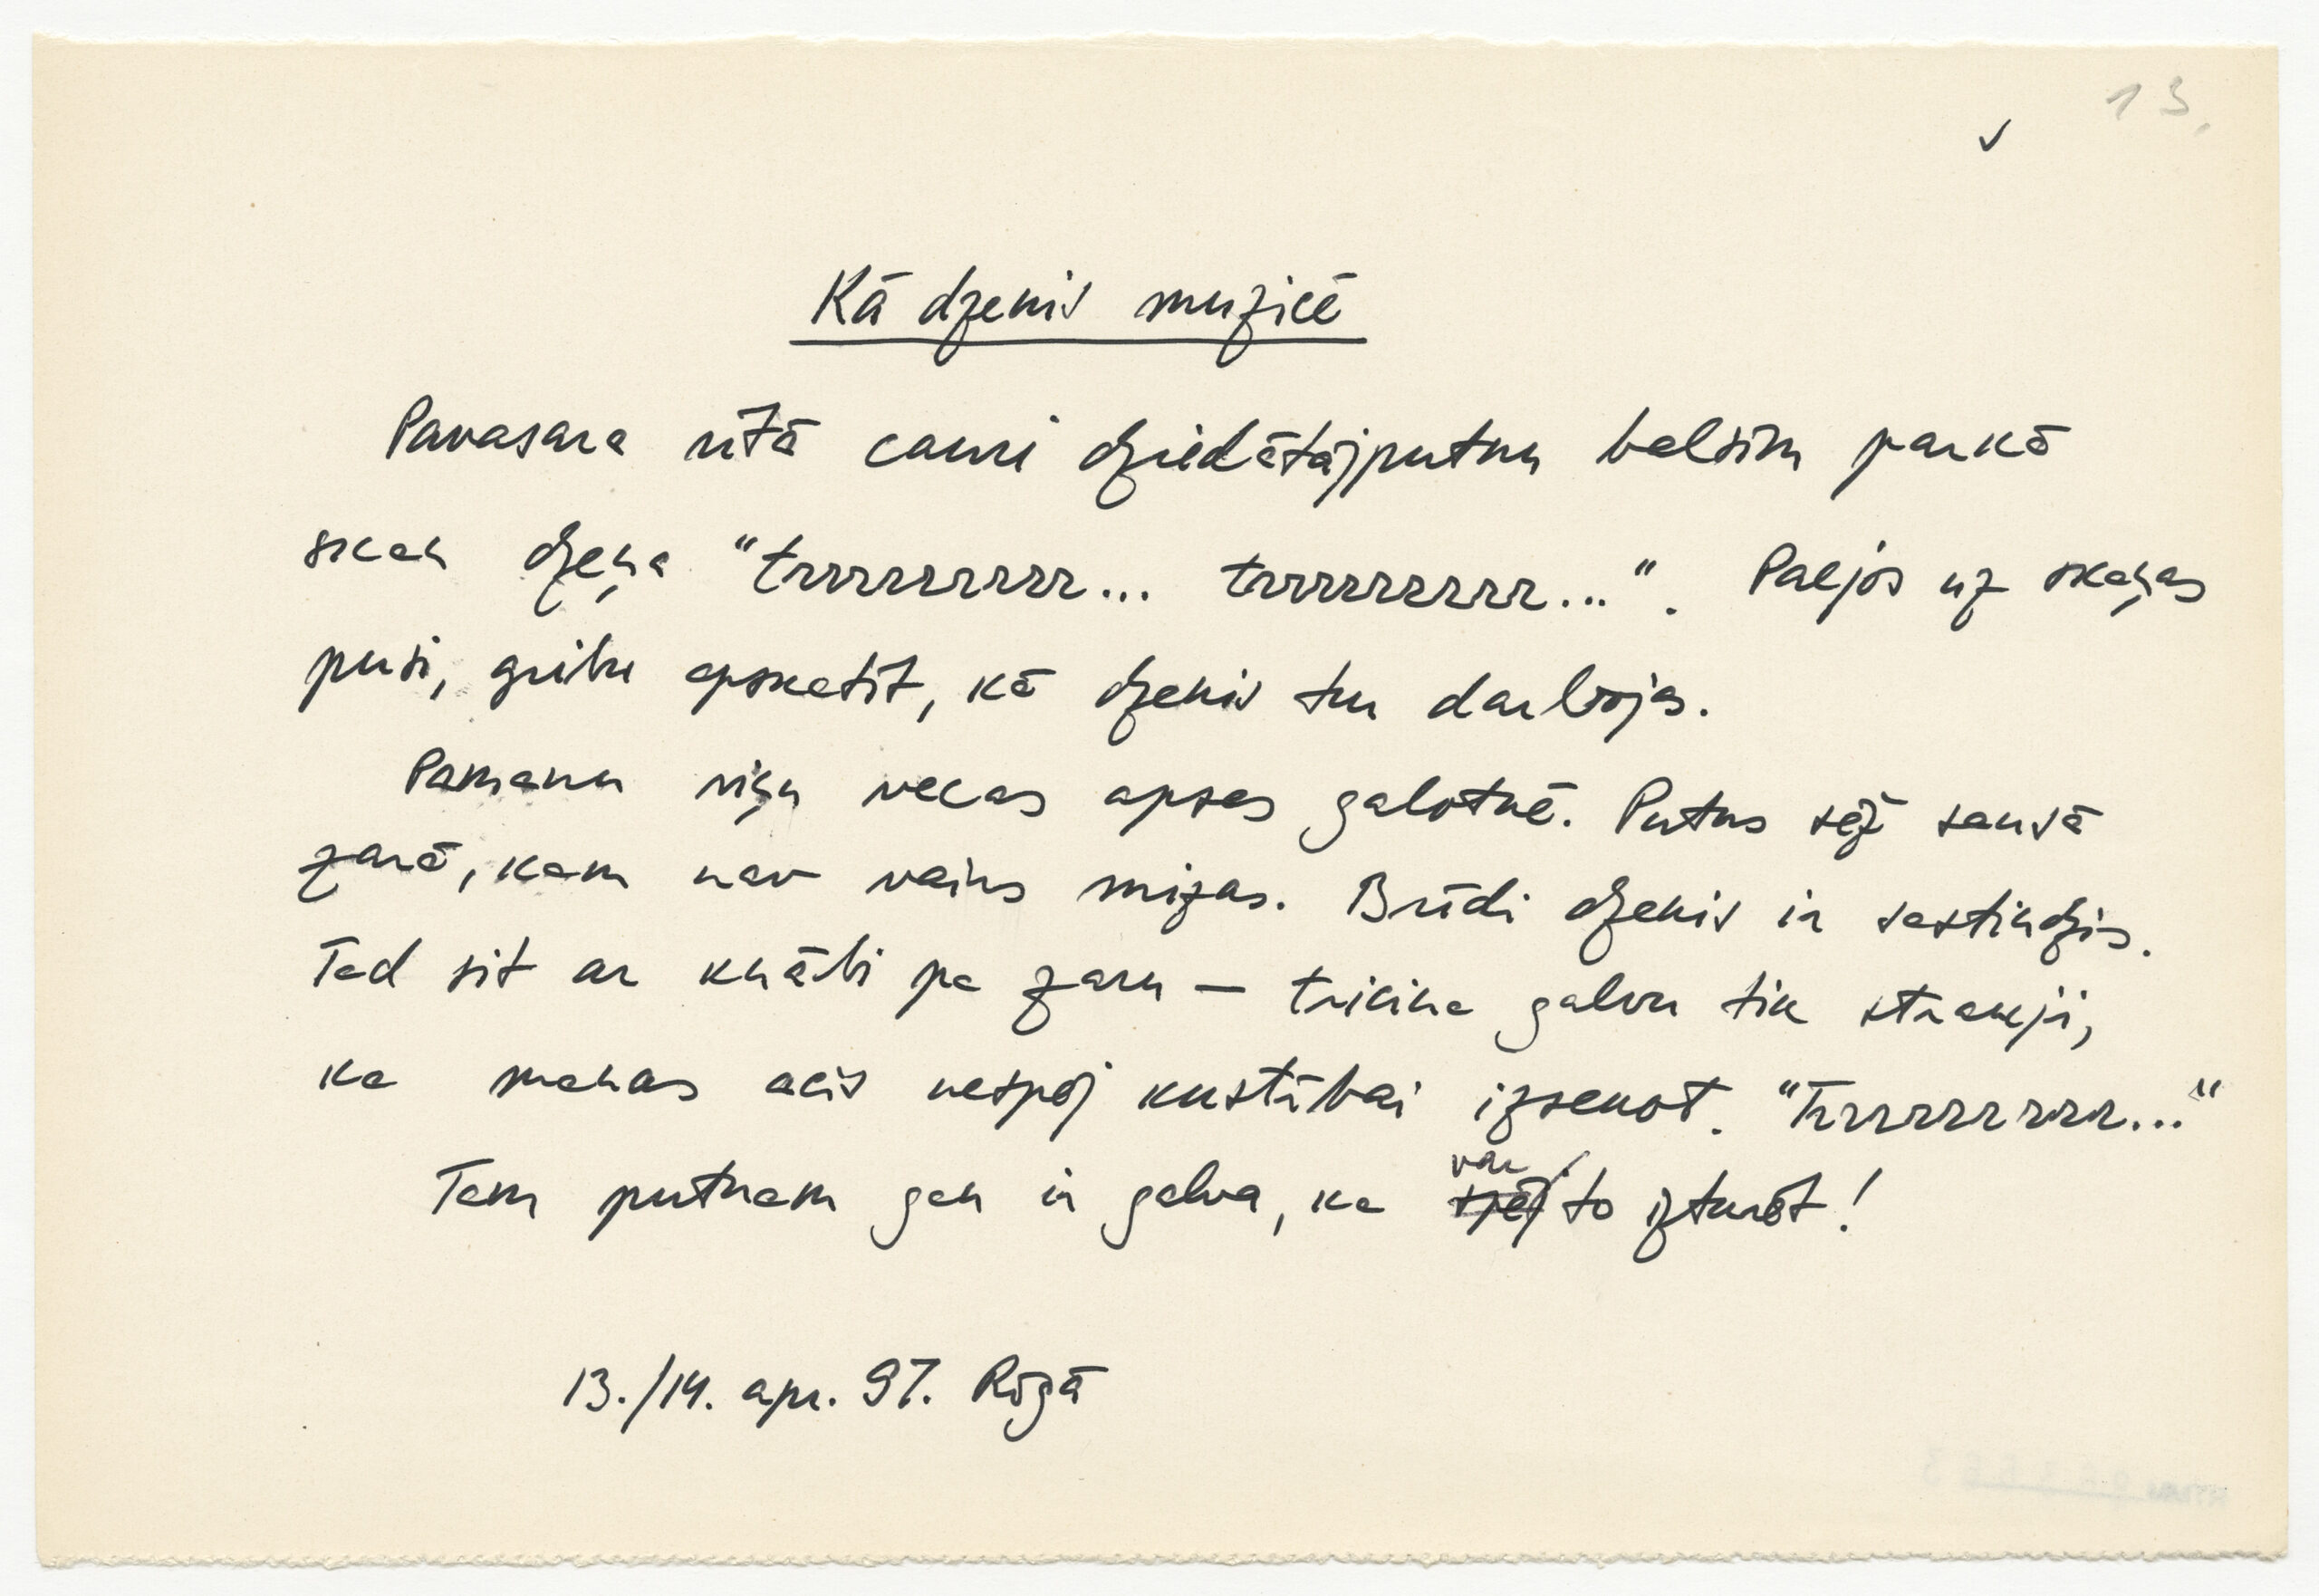 13.
✓
Kā dzenis muzicē
Pavasara rītā cauri dziedātājputnu balsīm parkā
skan dzeņa "trrrrrrrrr... trrrrrrrrr...". Paejos uz skaņas
pusi, gribu apskatīt, kā dzenis tur darbojas.
Pamanu viņu vecas apses galotnē. Putns sēž sausā
zarā, kam nav vairs mizas. Brīdi dzenis ir sastindzis.
Tad sit ar knābi pa zaru — tricina galvu tik strauji,
ka manas acis nespēj kustībai izsekot. "Trrrrrrrrr..."
Tam putnam gan ir galva, ka var to izturēt!
13./14. apr. 97. Rīgā